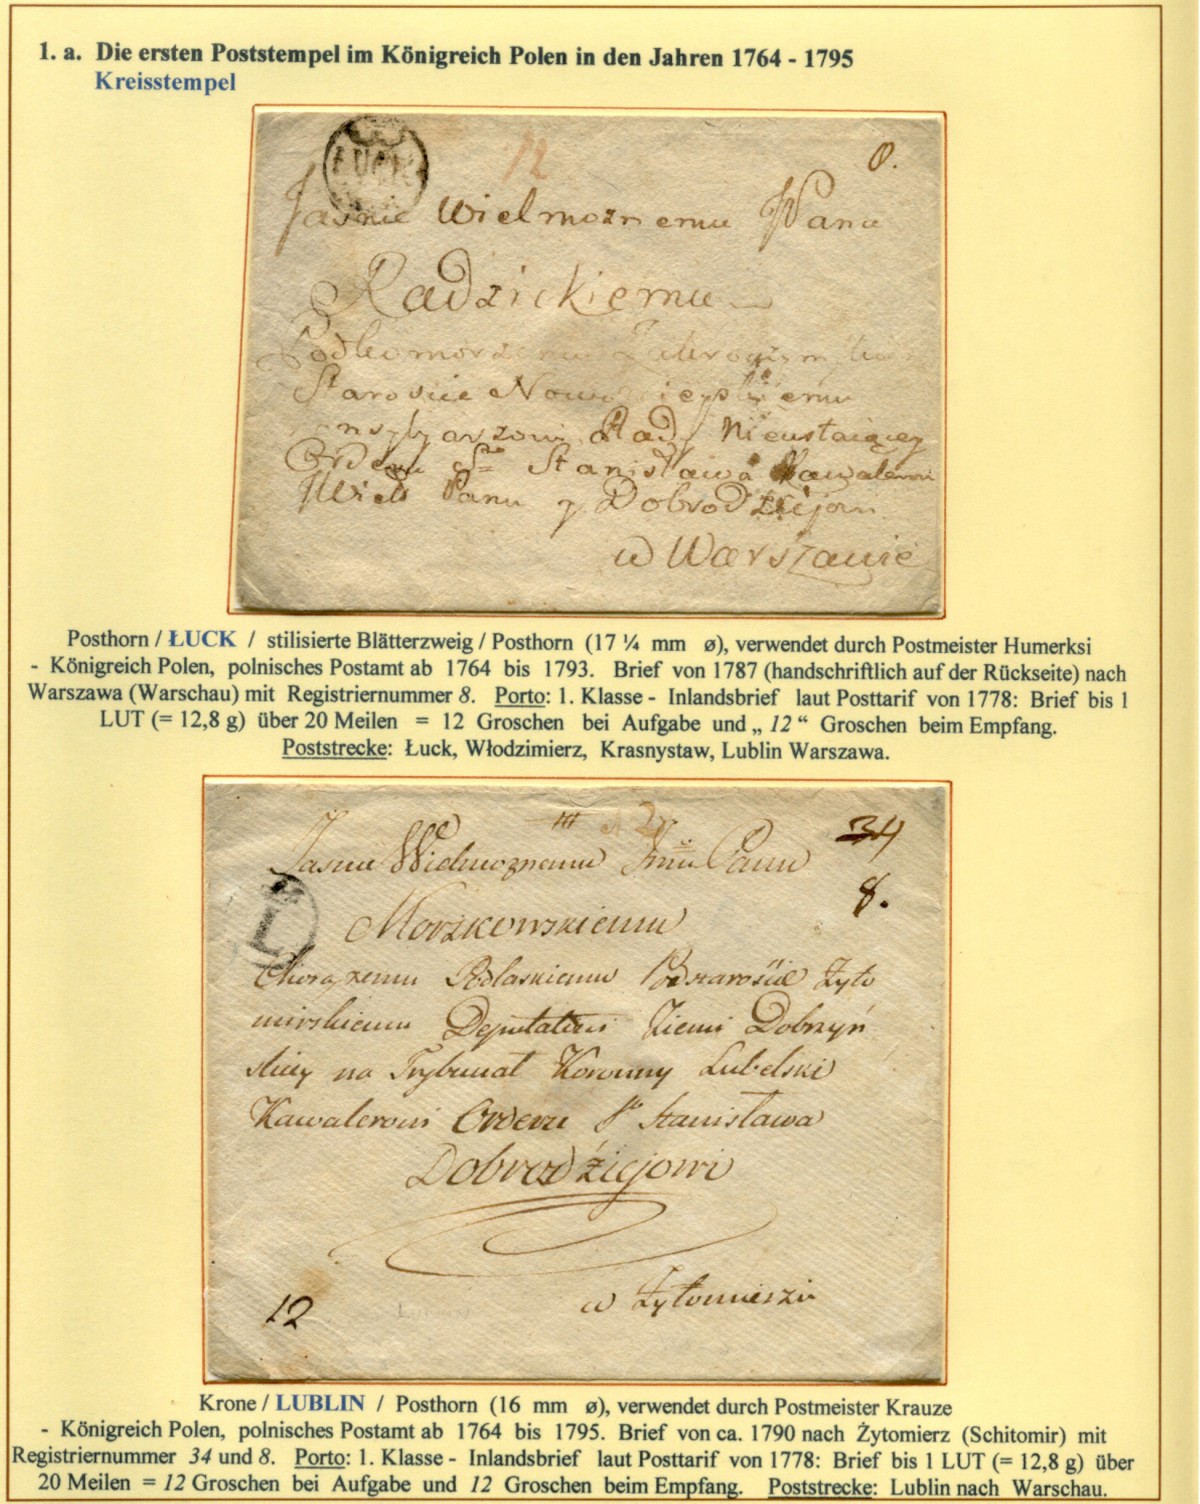 1. a. Die ersten Poststempel im Königreich Polen in den Jahren 1764 - 1795
Kreisstempel
ŁUCK
12
8.
Jasnie Wielmoznemu Panu
Radzickiemu
Podkomorzemu
Staroscie
Rady Nieustaiącey
Orderu Sgo Stanisława Kawalerowi
Panu y Dobrodzieiowi
w Warszawie
Posthorn / ŁUCK / stilisierte Blätterzweig / Posthorn (17 ¼ mm ø), verwendet durch Postmeister Humerksi
- Königreich Polen, polnisches Postamt ab 1764 bis 1793. Brief von 1787 (handschriftlich auf der Rückseite) nach
Warszawa (Warschau) mit Registriernummer 8. Porto: 1. Klasse - Inlandsbrief laut Posttarif von 1778: Brief bis 1
LUT (= 12,8 g) über 20 Meilen = 12 Groschen bei Aufgabe und „ 12 “ Groschen beim Empfang.
Poststrecke: Łuck, Włodzimierz, Krasnystaw, Lublin Warszawa.
34
Jasnie Wielmoznemu Panu
8.
Morzkowskiemu
L
Chorązemu Podlaskiemu Podstarośiie Żyto
mirskiemu Deputatowi Ziemi Dobrzyń
skiey na Trybunał Koronny Lubelski
Kawalerowi Orderu Sgo Stanisława
Dobrodźiejowi
w Żytomierzu
12
Krone / LUBLIN / Posthorn (16 mm ø), verwendet durch Postmeister Krauze
- Königreich Polen, polnisches Postamt ab 1764 bis 1795. Brief von ca. 1790 nach Żytomierz (Schitomir) mit
Registriernummer 34 und 8. Porto: 1. Klasse - Inlandsbrief laut Posttarif von 1778: Brief bis 1 LUT (= 12,8 g) über
20 Meilen = 12 Groschen bei Aufgabe und 12 Groschen beim Empfang. Poststrecke: Lublin nach Warschau.